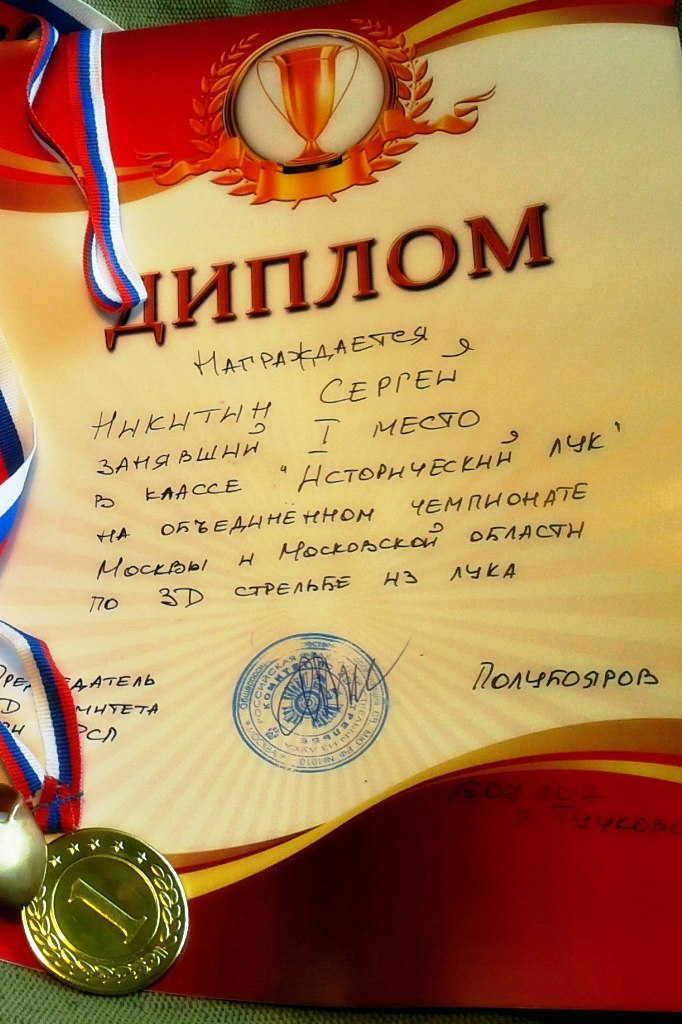 ДИПЛОМ
НАГРАЖДАЕТСЯ
НИКИТИН СЕРГЕЙ
ЗАНЯВШИЙ I МЕСТО
В КЛАССЕ "ИСТОРИЧЕСКИЙ ЛУК"
НА ОБЪЕДИНЁННОМ ЧЕМПИОНАТЕ
МОСКВЫ И МОСКОВСКОЙ ОБЛАСТИ
ПО 3D СТРЕЛЬБЕ ИЗ ЛУКА
ПОЛУБОЯРОВ
РОССИЙСКАЯ
КОМИТЕТ
СТРЕЛЬБЕ
1